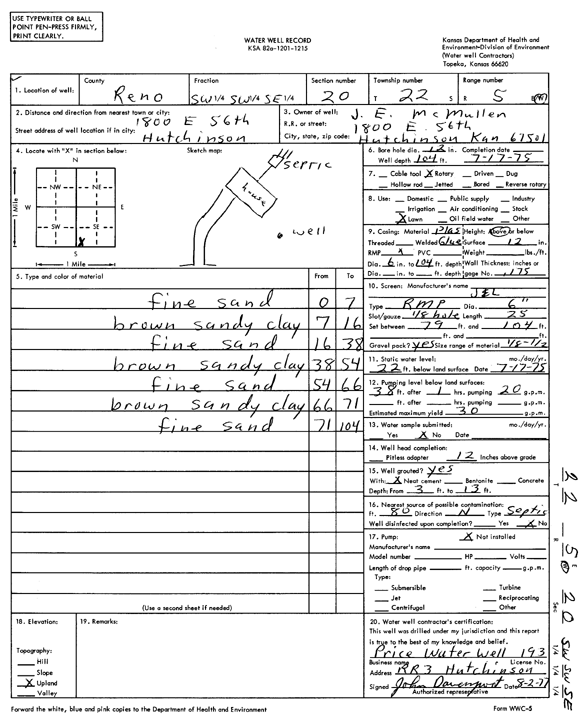 USE TYPEWRITER OR BALL
POINT PEN-PRESS FIRMLY,
PRINT CLEARLY.
WATER WELL RECORD
KSA 82a-1201-1215
Kansas Department of Health and
Environment-Division of Environment
(Water well Contractors)
Topeka, Kansas 66620
1. Location of well:
County
Reno
Fraction
SW 1/4 SW 1/4 SE 1/4
Section number
20
Township number
T 22 S
Range number
R 5
2. Distance and direction from nearest town or city:
1800 E 56th
Street address of well location if in city:
Hutchinson
3. Owner of well: J. E. McMullen
R.R. or street: 1800 E. 56th
City, state, zip code: Hutchinson Kan 67501
4. Locate with "X" in section below:
N
NW NE
W E
SW SE
X
S
1 Mile
1 Mile
Sketch map:
septic
house
well
6. Bore hole dia. 12 in. Completion date
Well depth 104 ft. 7-17-75
7. Cable tool X Rotary Driven Dug
Hollow rod Jetted Bored Reverse rotary
8. Use: Domestic Public supply Industry
Irrigation Air conditioning Stock
X Lawn Oil field water Other
9. Casing: Material Plas Height: Above or below
Threaded Welded Glue Surface 12 in.
RMP X PVC Weight lbs./ft.
Dia. 6 in. to 104 ft. depth Wall Thickness: inches or
Dia. in. to ft. depth gage No. .175
5. Type and color of material From To
fine sand 0 7
brown sandy clay 7 16
fine sand 16 38
brown sandy clay 38 54
fine sand 54 66
brown sandy clay 66 71
fine sand 71 104
(Use a second sheet if needed)
10. Screen: Manufacturer's name
J&L
Type RMP Dia. 6"
Slot/gauze 1/8 hole Length 25
Set between 79 ft. and 104 ft.
ft. and ft.
Gravel pack? yes Size range of material 1/8-1/2
11. Static water level: mo./day/yr.
22 ft. below land surface Date 7-17-75
12. Pumping level below land surfaces:
38 ft. after 1 hrs. pumping 20 g.p.m.
ft. after hrs. pumping g.p.m.
Estimated maximum yield 30 g.p.m.
13. Water sample submitted: mo./day/yr.
Yes X No Date
14. Well head completion:
Pitless adapter 12 Inches above grade
15. Well grouted? yes
With: X Neat cement Bentonite Concrete
Depth: From 3 ft. to 13 ft.
16. Nearest source of possible contamination:
ft. 80 Direction N Type Septic
Well disinfected upon completion? Yes X No
17. Pump: X Not installed
Manufacturer's name
Model number HP Volts
Length of drop pipe ft. capacity g.p.m.
Type:
Submersible Turbine
Jet Reciprocating
Centrifugal Other
18. Elevation:
Topography:
Hill
Slope
X Upland
Valley
19. Remarks:
20. Water well contractor's certification:
This well was drilled under my jurisdiction and this report
is true to the best of my knowledge and belief.
Price Water Well 193
Business name License No.
Address RR3 Hutchinson
Signed John Davenport Date 8-2-77
Authorized representative
Forward the white, blue and pink copies to the Department of Health and Environment
Form WWC-5
T 22 - R 5 E Sec 20 1/4 SW 1/4 SW 1/4 SE